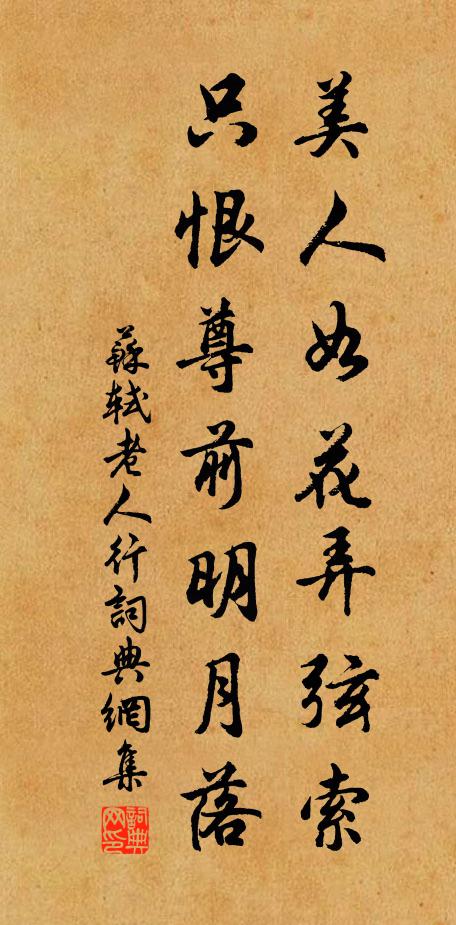 美人如花弄弦索
只恨尊前明月落
蘇軾老人行詞典網集
詞典网印